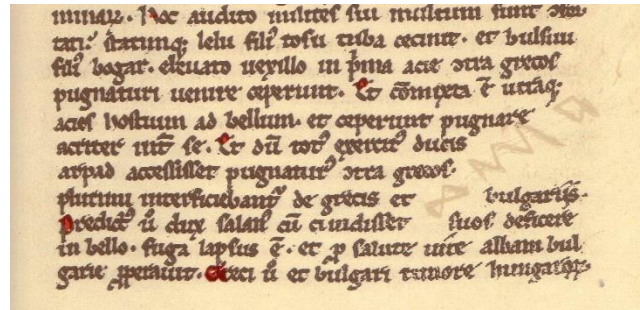 minaꝝ. Hoc audito milites sui multum sunt ꝯfor
tati. statimqꝫ lelu fili᷒ tosu tuba cecinit. et bulsuu
fili᷒ bogat. eleuato uexillo in p̾ma acie ꝯtra grecos
pugnaturi uenire ceperunt. Et cōmixta ē utraqꝫ
acies hostium ad bellum. et ceperunt pugnare
acriter int̾ se. Et dū tot᷒ exercit᷒ ducis
arpad accessisset pugnatur᷒ ꝯtra grecos.
plurimi interficiebant᷑ de grecis et bulgariis.
Predict᷒ ů dux salan᷒ cū uidisset suos deficere
in bello. fuga lapsus ē. et ꝓ salute uite albam bul
garie ꝓperauit. Greci ů et bulgari timore hungaroꝝ